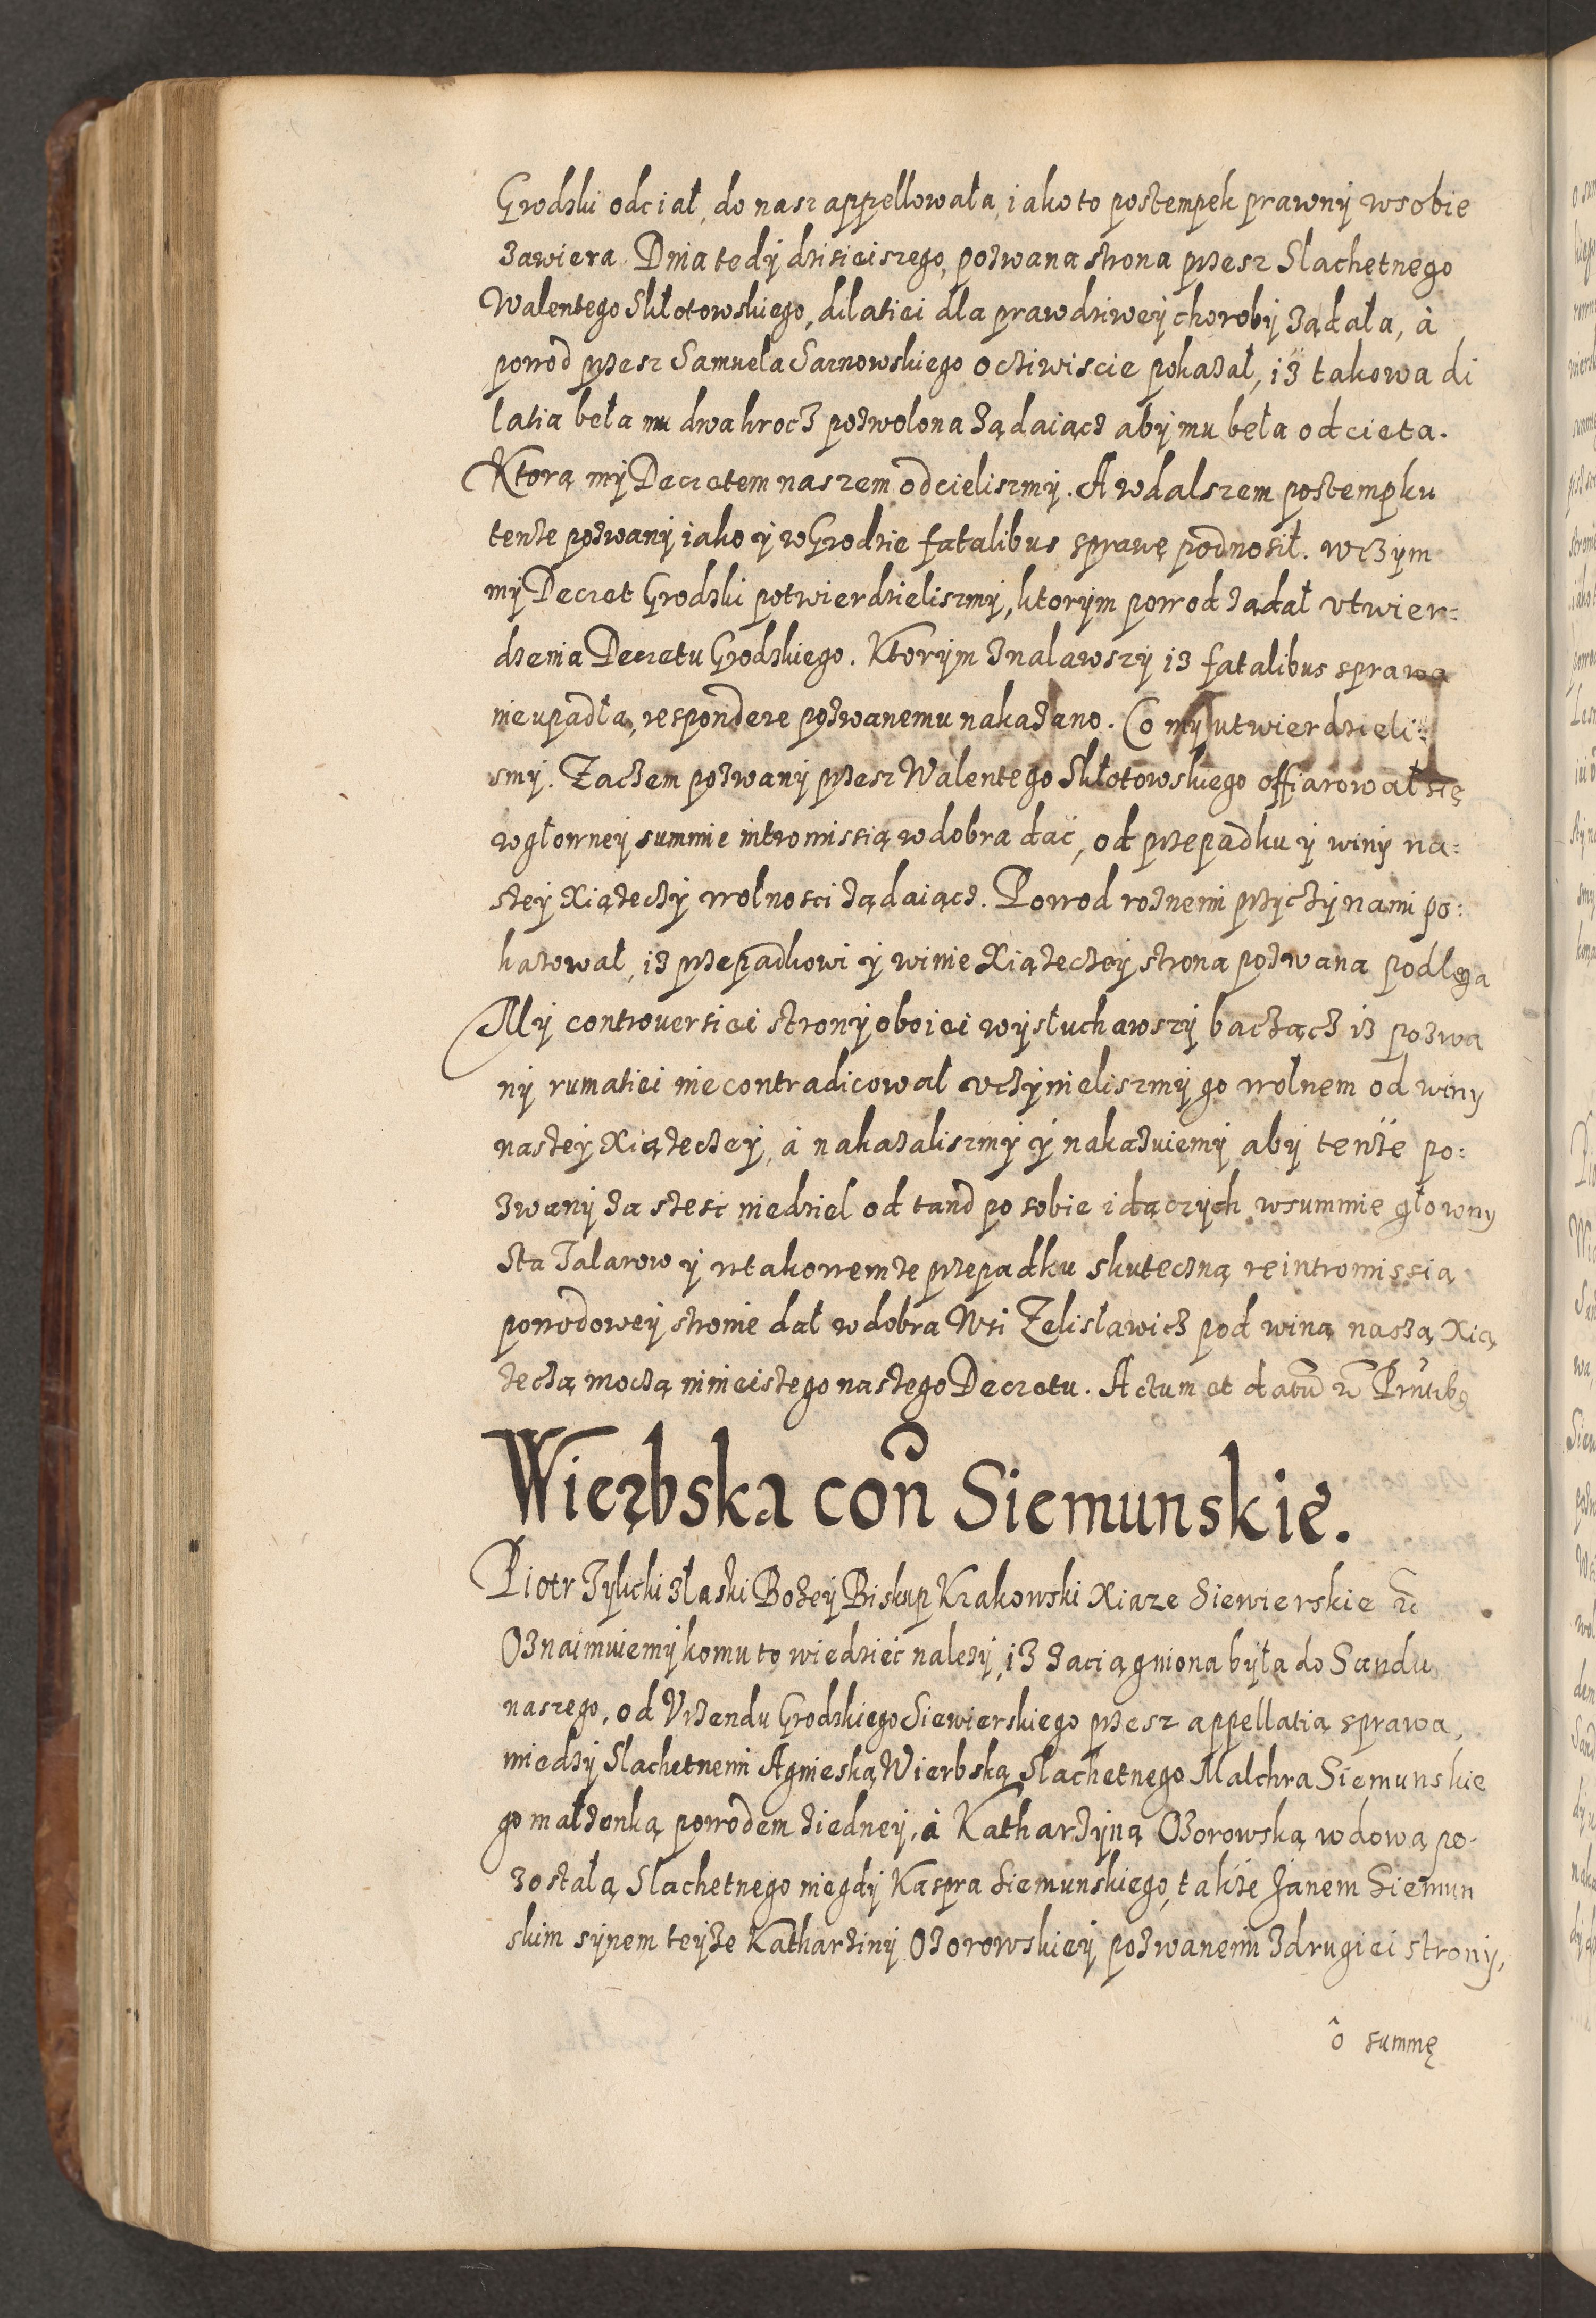 Grodzki odciał, do nasz appellowała, iako to postempek prawny w sobie
zawiera. Dnia tedy dzisieiszego, pozwana strona przesz Slachetnego
Walentego Skłotowskiego, dilatiei dla prawdziwey choroby ządała, à
powod przesz Samuela Sarnowskiego oczliwiscie pokazał, iż takowa di
latia beła mu dwakrocz pozwolona ządaiącz aby mu beła odcieta.
Ktorą my Decretem naszem odcieliszmy. A w dalszem postempku
tenze pozwany iako y w Grodzie fatalibus sprawę podnosił. W czym
my Decret Grodzki potwierdzieliszmy, ktorym powod ządał vtwier=
dzenia Decretu Grodzkiego. Ktorym znalawszy iz fatalibus sprawa
nie upadła, respondere pozwanemu nakazano. Co my utwierdzieli=
smy. Zaczem pozwany przesz Walentego Skłotowskiego offiarował się
w głowney summie intromissią w dobra dać, od przepadku y winy na=
szey Xiązeczy wolnosci ządaiącz. Powod roznemi przyczynami po=
kazował, iz przepadkowi y winie Xiązeczey strona pozwana podlega
My controuersiei strony oboiei wysłuchawszy baczącz iz pozwa
ny rumatiei nie contradicował vczynieliszmy go wolnem od winy
naszey Xiązeczey, à nakazaliszmy y nakazuiemy aby tenże po=
zwany za szesc niedziel od tand po sobie idączych w summie głowny
sta Talarow y w takowemze przepadku skuteczną reintromissią
powodowey stronie dał w dobra Wsi Zelisławicz pod winą naszą Xią
zeczą moczą ninieiszego naszego Decretu. Actum et datū ut Prntibs
Wierzbska con Siemunskie.
Piotr Tylicki z łaski Bozey Biskup Krakowski Xiaze Siewierskie etc
Oznaimuiemy komu to wiedzieć nalezy, iz zaciągniona była do Sandu
naszego, od Vrzendu Grodzkiego Siewierskiego przesz appellatią sprawa,
miedzy Slachetnemi Agnieską Wierbską Slachetnego Malchra Siemunskie
go małzonką powodem z iedney, à Katharzyną Ozorowską wdową po-
zostałą Slachetnego niegdy Kaspra Siemunskiego, także Janem Siemun
skim synem teyze Katharziny Ozorowskiey pozwanemi z drugiei strony,
ô summę